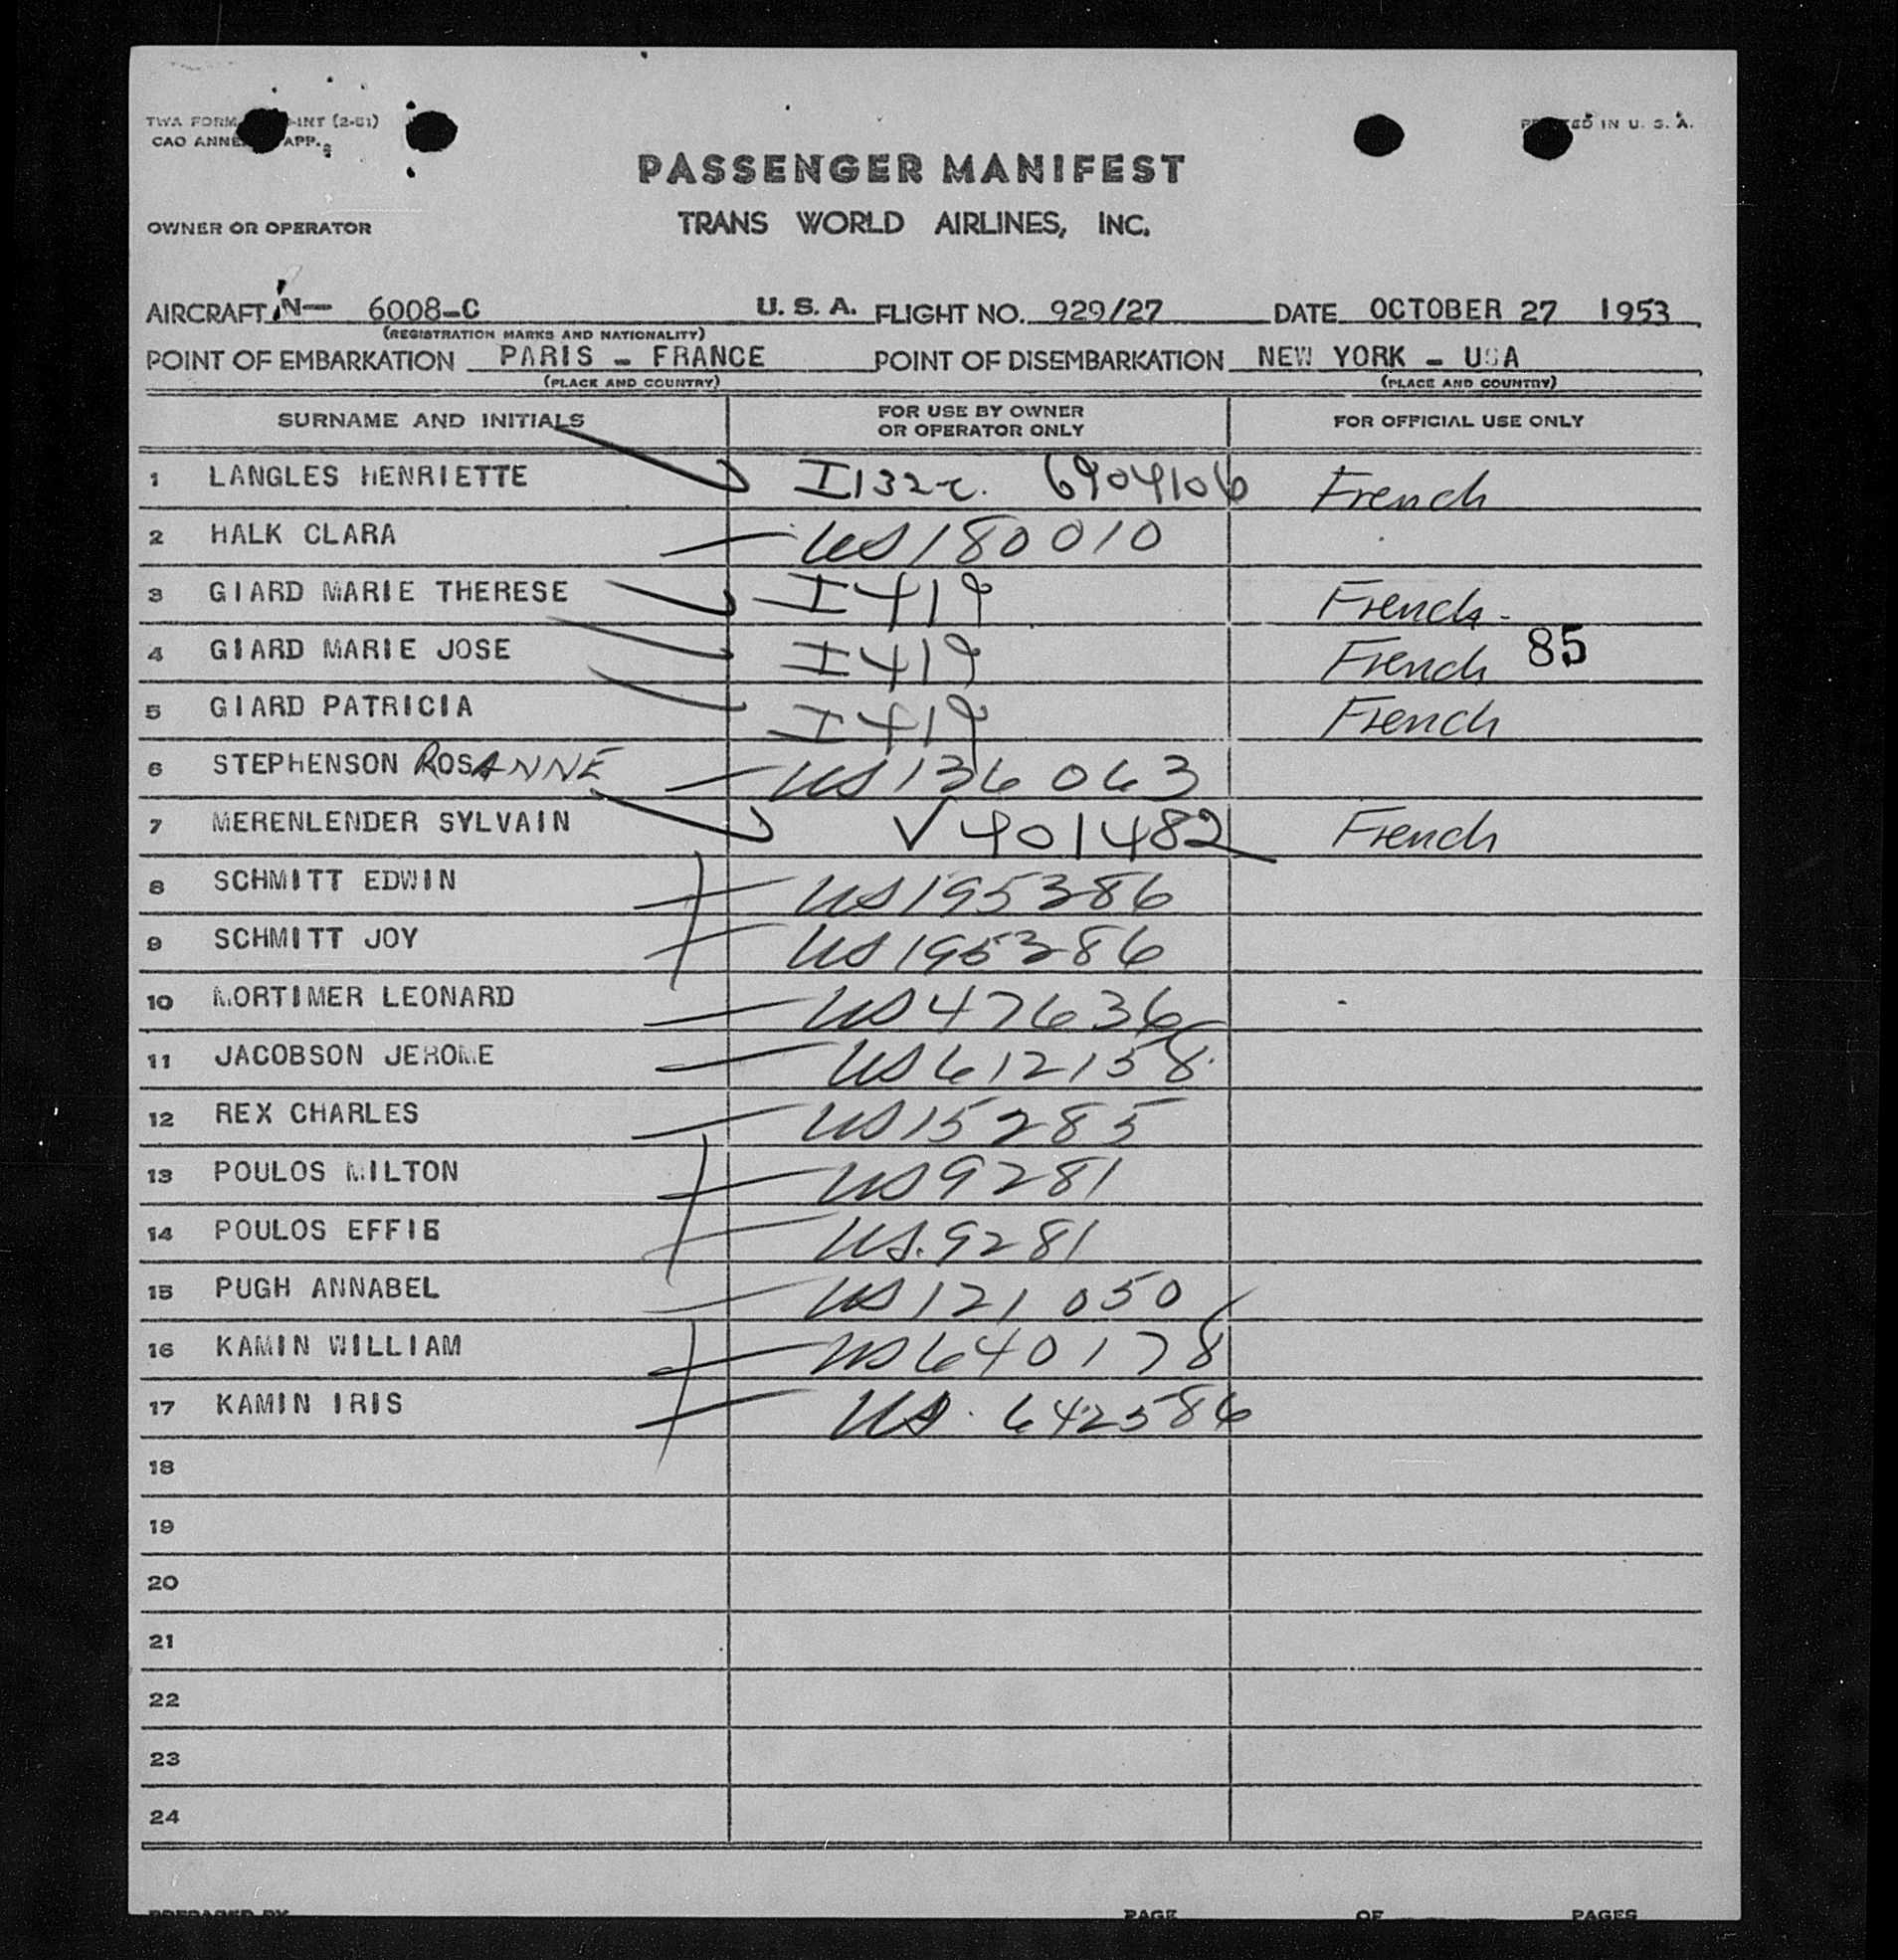 TWA FORM -INT (2-51) PRINTED IN U. S. A.
CAO ANNEX APP.
PASSENGER MANIFEST
TRANS WORLD AIRLINES, INC.
OWNER OR OPERATOR
AIRCRAFT N— 6008-C U. S. A. FLIGHT NO. 929/27 DATE OCTOBER 27 1953
(REGISTRATION MARKS AND NATIONALITY)
POINT OF EMBARKATION PARIS - FRANCE POINT OF DISEMBARKATION NEW YORK - USA
(PLACE AND COUNTRY) (PLACE AND COUNTRY)
SURNAME AND INITIALS FOR USE BY OWNER OR OPERATOR ONLY FOR OFFICIAL USE ONLY
1 LANGLES HENRIETTE I132 6904106 French
2 HALK CLARA US 180010
3 GIARD MARIE THERESE I419 French
4 GIARD MARIE JOSE I419 French 85
5 GIARD PATRICIA I419 French
6 STEPHENSON ROSANNE US 136063
7 MERENLENDER SYLVAIN V 901482 French
8 SCHMITT EDWIN US 195386
9 SCHMITT JOY US 195386
10 MORTIMER LEONARD US 47636
11 JACOBSON JEROME US 612158
12 REX CHARLES US 15285
13 POULOS MILTON US 9281
14 POULOS EFFIE US. 9281
15 PUGH ANNABEL US 121050
16 KAMIN WILLIAM US 640178
17 KAMIN IRIS US. 642586
18
19
20
21
22
23
24
PREPARED BY PAGE OF PAGES